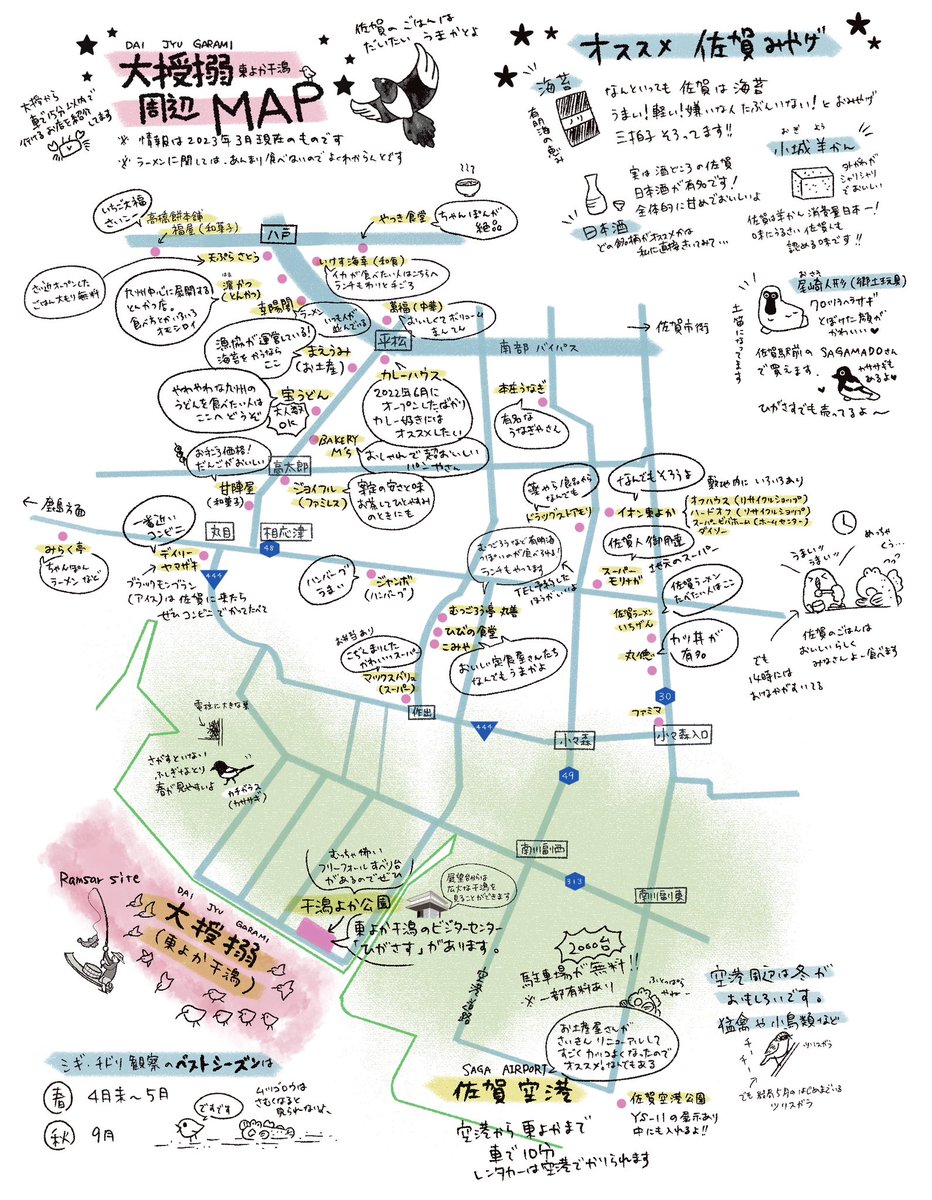 DAI JYU GARAMI
大授搦 東よか干潟
周辺 MAP
※ 情報は2023年3月現在のものです
※ラーメンに関しては、あんまり食べないのでよくわからんとです
大授から
車で15分以内で
行けるお店を紹介してます
佐賀のごはんは
だいたい うまかとよ
オススメ 佐賀みやげ
海苔
有明海の恵み
ノリ
なんといっても 佐賀は 海苔
うまい!軽い!嫌いな人たぶんいない!と おみやげ
三拍子 そろってます!!
実は 酒どころの佐賀
日本酒が有名です!
全体的に甘めでおいしいよ
日本酒
どの銘柄がオススメかは
私に直接きいてみて…
おぎ よう
小城羊かん
外がわが
シャリシャリ
でおいしい
佐賀は羊かん 消費量日本一!
味にうるさい 佐賀人も
認める味です!!
おさき
尾崎人形(郷土玩具)
クロツラヘラサギ
とぼけた顔が
かわいい
土笛になってます
佐賀駅前の SAGAMADOさん
で買えます。
カササギも
あるよ
ひがさすでも売ってるよ〜
いちご大福
さいこー
高橋餅本舗
福屋(和菓子)
八戸
やつき食堂
ちゃんぽんが
絶品
天ぷら さとう
最近オープンした
ごはん大もり無料
いけす海幸(和食)
イカが食べたい人はこちらへ
ランチもわりと手ごろ
はま
濵かつ
(とんかつ)
九州中心に展開する
とんかつ店
食べ方とかいろいろ
オモシロイ
幸陽閣
ラーメン
いつも人が
並んでいる
萬福(中華)
おいしくてボリューム
まんてん
平松
南部 バイパス
→佐賀市街
漁協が運営している!
海苔をかうなら
ここ
まえうみ
(お土産)
カレーハウス
2022年6月に
オープンしたばかり
カレー好きには
オススメしたい
やわやわな九州の
うどんを食べたい人は
ここへどうぞ
宝うどん
大人数
OK
本庄うなぎ
有名な
うなぎやさん
BAKERY
M's
おしゃれで超おいしい
パンやさん
お手ごろ価格!
だんごがおいしい
高太郎
甘陣屋
(和菓子)
ジョイフル
(ファミレス)
安定の安さと味
お茶してひとやすみ
のときにも
薬から食品から
なんでも
ドラッグストアモリ
なんでもそろうよ
イオン東よか
敷地内に いろいろあり
オフハウス(リサイクルショップ)
ハードオフ(リサイクルショップ)
スーパービバホーム(ホームセンター)
ダイソー
←鹿島方面
みらく亭
ちゃんぽん
ラーメンなど
一番近い
コンビニ
丸目
相応津
48
デイリー
ヤマザキ
444
ブラックモンブラン
(アイス)は 佐賀に来たら
ぜひ コンビニ でかってたべて
ハンバーグ
うまい
ジャンボ
(ハンバーグ)
むつごろうなど有明海
っぽいのが食べれるよ!
ランチもやってます
TEL予約した
ほうがいいよ
佐賀人 御用達
地元のスーパー
スーパー
モリナガ
佐賀ラーメン
たべたい人はここ
佐賀ラーメン
いちげん
むつごろう亭 丸善
ひびの食堂
こみや
おいしい定食屋さんたち
なんでもうまかよ
丸徳
カツ丼が
有名
お弁当あり
こぢんまりした
かわいいスーパー
マックスバリュ
(スーパー)
うまいッ
うまいッ
めっちゃ
くう…
佐賀のごはんは
おいしいらしく
みなさんよー食べます
でも
14時には
おなかがすいてる
30
ファミマ
作出
444
小々森
小々森入口
49
電柱に大きな巣
さがすといない
ふしぎなとり
春が見やすいよ
カチガラス
(カササギ)
南川副西
313
南川副東
むっちゃ怖い
フリーフォールすべり台
があるのでぜひ
干潟よか公園
展望台からは
広大な干潟を
見ることができます
東よか干潟のビジターセンター
「ひがさす」があります。
Ramsar site
DAI JYU GARAMI
大授搦
(東よか干潟)
空港道路
2000台
駐車場が無料!!
※一部有料あり
お土産屋さんが
さいきん リニューアルして
すごくカッコよくなったので
オススメ。なんでもある
空港周辺は冬が
おもしろいです。
猛禽や小鳥類など
チ
チ
ツリスガラ
でも 結局5月のはじめまでいる
ツリスガラ
SAGA AIRPORT
佐賀空港
空港から 東よかまで
車で10分
レンタカーは空港でかりられます
佐賀空港公園
YS-11の展示あり
中にも入れるよ!!
シギ・チドリ 観察のベストシーズンは
春 4月末〜5月
秋 9月
ですです
ムツゴロウは
さむくなると
見られないよ〜